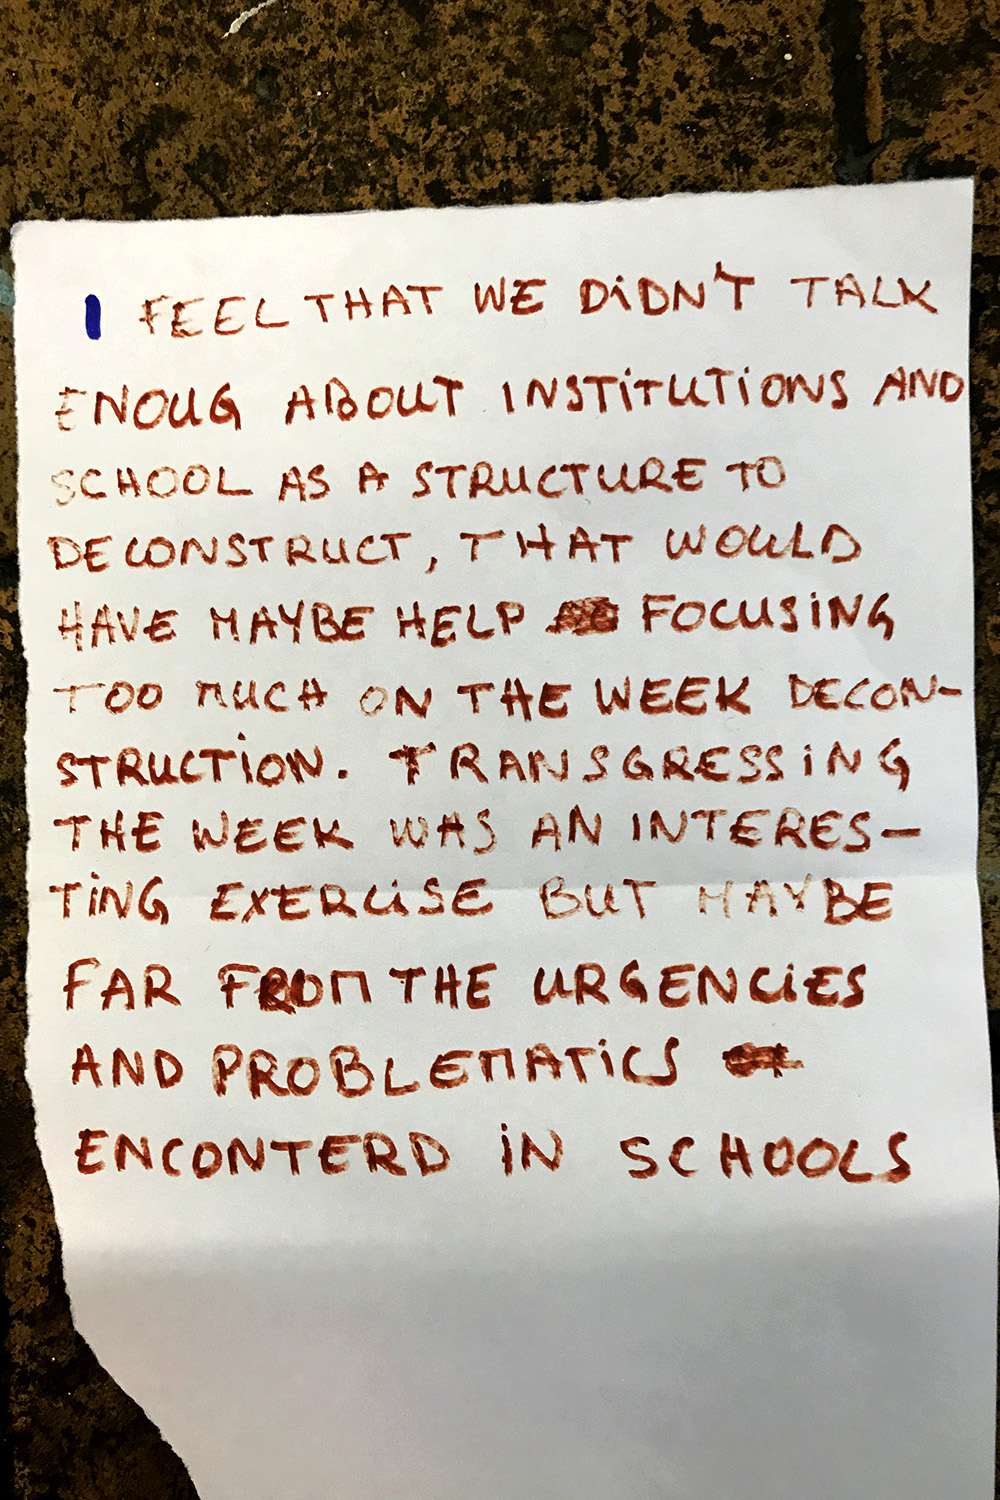 I FEEL THAT WE DiDN'T TALK
ENOUG ABOUT INSTiTUTiONS AND
SCHOOL AS A STRUCTURE TO
DECONSTRUCT, THAT WOULD
HAVE MAYBE HELP FOCUSiNG
TOO MUCH ON THE WEEK DECON-
STRUCTiON. TRANSGRESSiNG
THE WEEK WAS AN INTERES-
TiNG EXERCiSE BUT MAYBE
FAR FROM THE URGENCiES
AND PROBLEMATiCS
ENCONTERD iN SCHOOLS